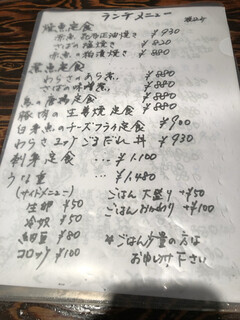 ランチメニュー 税込み
焼魚定食
赤魚 ¥930
さばの塩焼き ¥820
赤魚の粕漬焼き ¥880
煮魚定食
わらさのあら煮 ¥880
さばの味噌煮 ¥880
鳥の唐揚定食 ¥880
豚肉の生姜焼定食 ¥880
白身魚のチーズフライ定食 ¥900
わらさユッケごまだれ丼 ¥930
刺身定食 … ¥1.100
うな重 … ¥1.480
(サイドメニュー) ごはん大盛り +¥50
生卵 ¥50 ごはんおかわり +¥100
冷奴 ¥50
納豆 ¥80 * ごはん少量の方は
コロッケ ¥100 お申し付け下さい